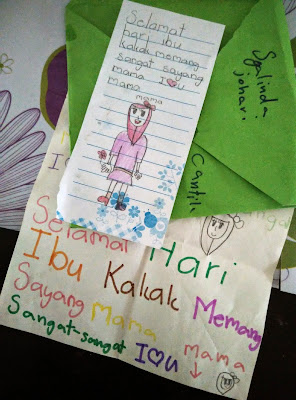 Selamat
hari ibu
kakak memang
sangat sayang
mama I♡u
mama
mama
Syalinda
johari
Cantik
Selamat Hari
Ibu Kakak Memang
Sayang Mama
Sangat-sangat I♡u mama
↓